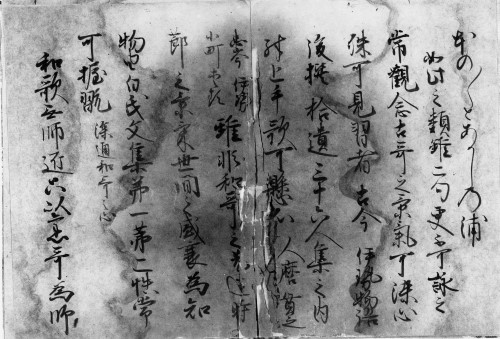 ほの〱とあかしの浦
如此之類雖二句更不可詠之
常觀念古哥之景氣可染心
殊可見習者古今伊勢物語
後撰拾遺三十六人集之内
殊上手歌可懸心人麿貫之
忠岑伊勢
小町等類
雖非和哥之先達時
節之景氣世間之盛衰為知
物由白氏文集第一第二帙常
可握翫深通和哥之心
和歌無師匠只以舊哥為師